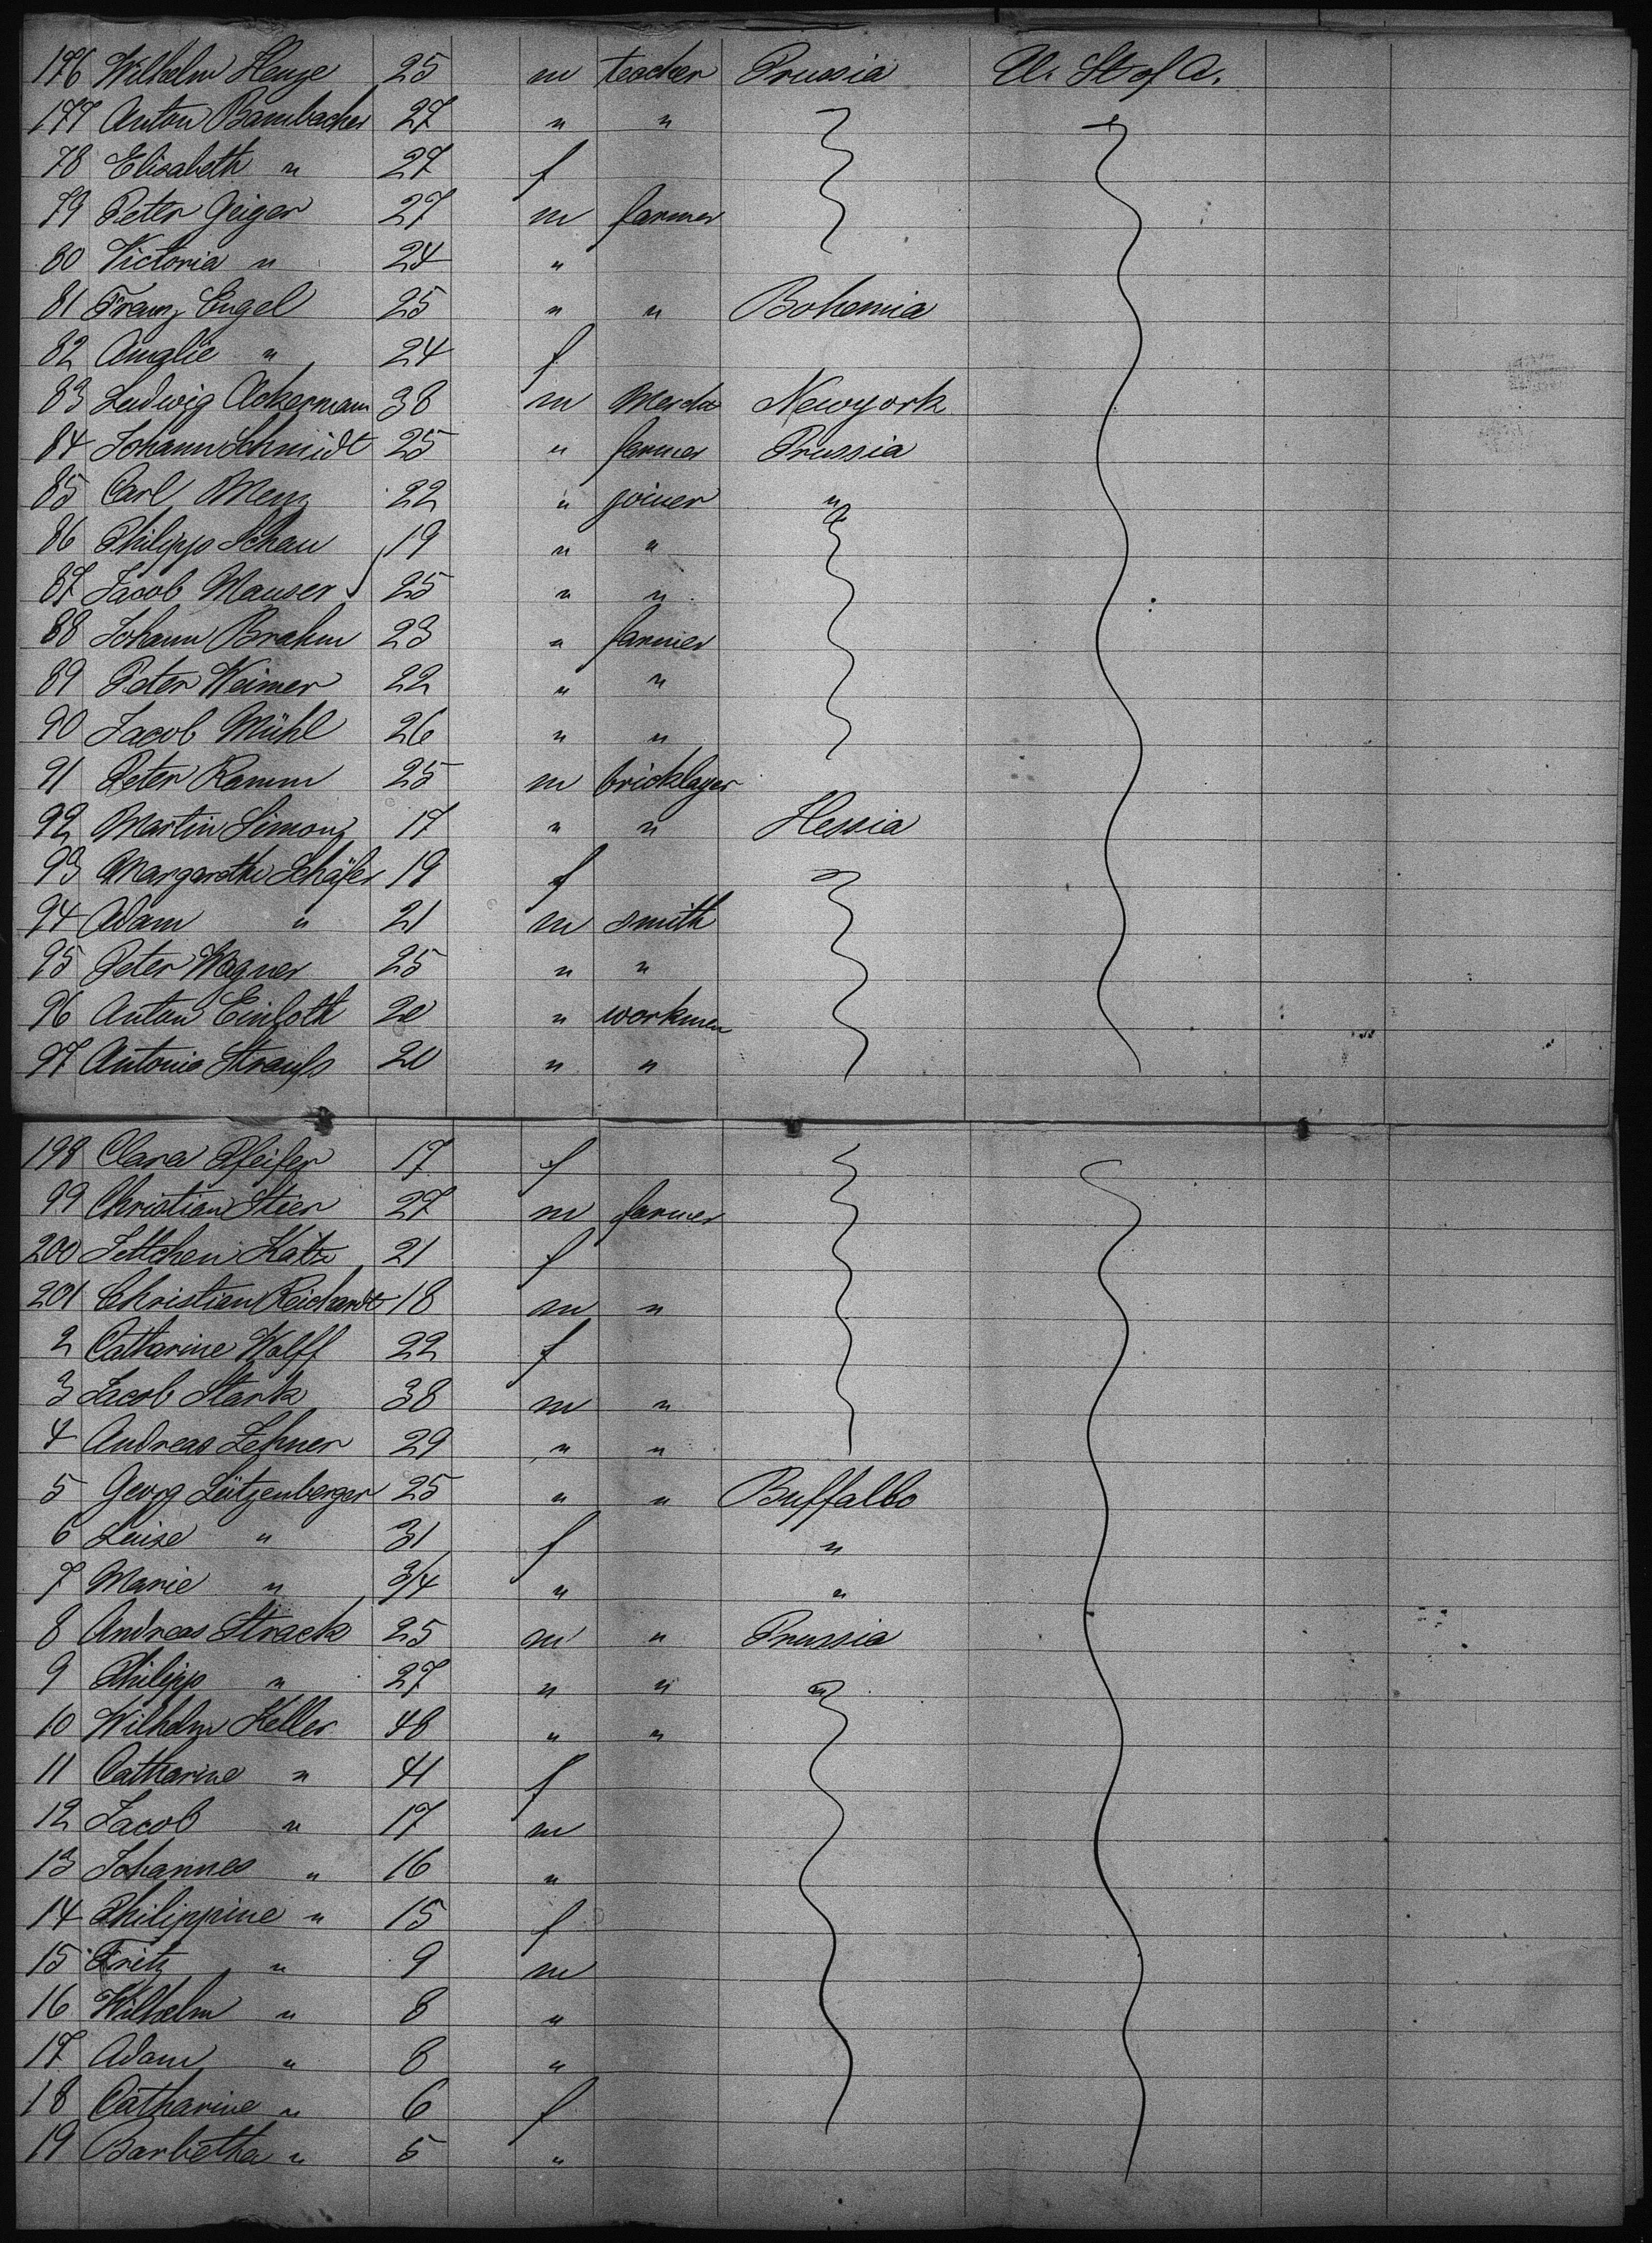 176 Wilhelm Henze 25 m teacher Prussia U. St of A.
177 Anton Bambacher 27 " "
78 Elisabeth " 27 f
79 Peter Geiger 27 m farmer
80 Victoria " 24 "
81 Franz Engel 25 " " Bohemia
82 Amalie " 24 f
83 Ludwig Ackermann 38 m Merch Newyork
84 Johann Schmidt 25 " farmer Prussia
85 Carl Menz 22 " joiner "
86 Philipp Schau 19 " "
87 Jacob Mauser 25 " "
88 Johann Brahm 23 " farmer
89 Peter Weimer 22 " "
90 Jacob Mühl 26 " "
91 Peter Ramm 25 m bricklayer
92 Martin Simonz 17 " " Hessia
93 Margarethe Schäfer 19 f
94 Adam " 21 m smith
95 Peter Wagner 25 " "
96 Anton Einloth 20 " workmen
97 Antonio Strauß 20 " "
198 Clara Pfeifer 17 f
99 Christian Stier 27 m farmer
200 Settchen Katz 21 f
201 Christian Reichardt 18 m "
2 Catharine Wolff 22 f
3 Jacob Stark 38 m "
4 Andreas Lehner 29 " "
5 Georg Lützenberger 25 " " Buffalbo
6 Luise " 31 f "
7 Marie " 3/4 " "
8 Andreas Strack 25 m " Prussia
9 Philipp " 27 " " "
10 Wilhelm Keller 48 " "
11 Catharine " 41 f
12 Jacob " 17 m
13 Johannes " 16 "
14 Philippine " 15 f
15 Fritz " 9 m
16 Wilhelm " 8 "
17 Adam " 8 "
18 Catharine " 6 f
19 Barbetha " 5 "